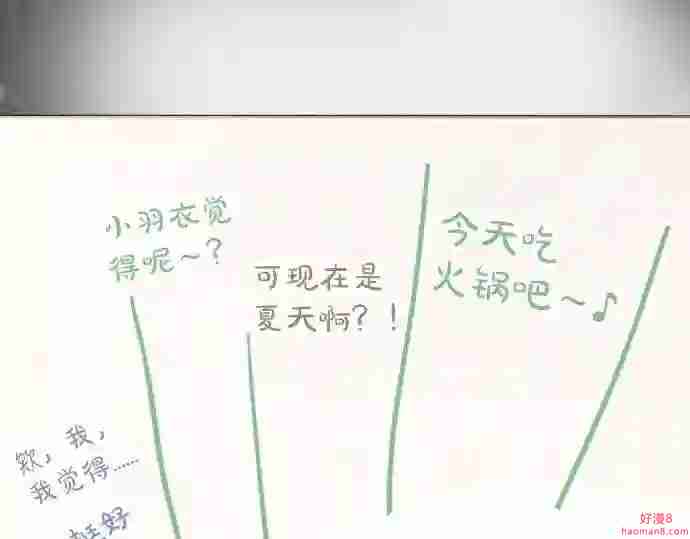 今天吃
火锅吧~♪
可现在是
夏天啊?!
小羽衣觉
得呢~?
欸，我，
我觉得……
挺好
好漫8
haoman8.com